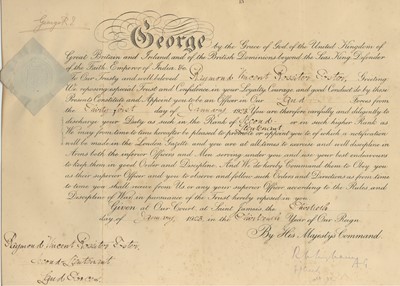 George R.I.
George by the Grace of God of the United Kingdom of
Great Britain and Ireland, and of the British Dominions beyond the Seas, King Defender
of the Faith, Emperor of India, &c.
To Our Trusty and well beloved Raymond Vincent Greeting
We reposing especial Trust and Confidence in your Loyalty Courage, and good Conduct do by these
Presents Constitute and Appoint you to be an Officer in Our Land Forces from
the day of You are therefore carefully and diligently to
discharge your Duty as such in the Rank of Second Lieutenant or in such higher Rank as
We may from time to time hereafter be pleased to promote or appoint you to of which a notification
will be made in the London Gazette and you are at all times to exercise and well discipline in
Arms both the inferior Officers and Men serving under you and use your best endeavours
to keep them in good Order and Discipline. And We do hereby Command them to Obey you
as their superior Officer and you to observe and follow such Orders and Directions as from time
to time you shall receive from Us or any your superior Officer according to the Rules and
Discipline of War in pursuance of the Trust hereby reposed in you.
Given at Our Court at Saint James's the
day of in the Year of Our Reign
By His Majesty's Command.
Raymond Vincent
Second Lieutenant
Land Forces